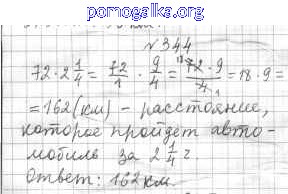 pomogalka.org
№ 344
72 · 2 1/4 = 72/1 · 9/4 = 18 72 · 9 / 4 1 = 18 · 9 =
= 162 (км) – расстояние,
которое пройдет авто-
мобиль за 2 1/4 ч.
ответ: 162 км.